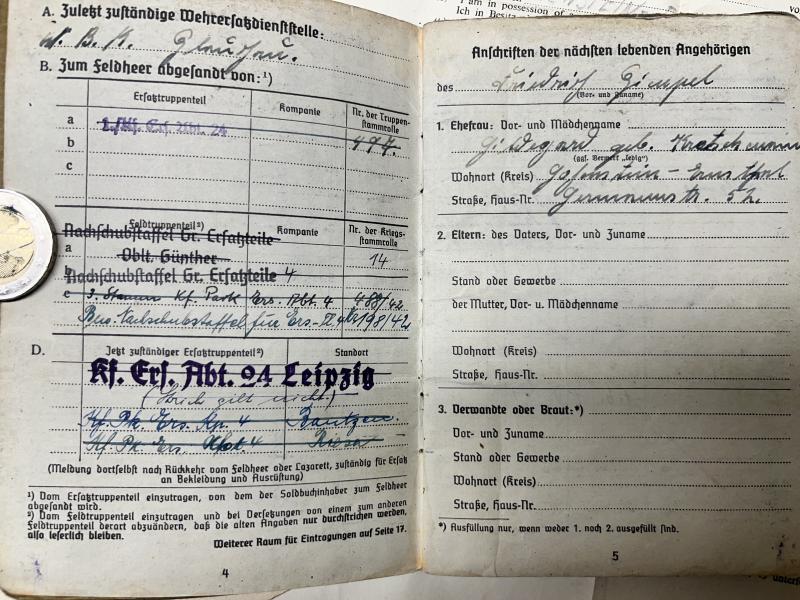 I am in possession of a
Ich in Besitz
A. Zuletzt zuständige Wehrersatzdienststelle:
W. B. K. Glauchau.
B. Zum Feldheer abgesandt von:¹)
Ersatztruppenteil
Kompanie
Nr. der Truppen-
stammrolle
a
1./Kf. Ers. Abt. 24
b
494.
c
Feldtruppenteil²)
Kompanie
Nr. der Kriegs-
stammrolle
Nachschubstaffel Gr. Ersatzteile
a
Oblt. Günther
14
b
Nachschubstaffel Gr. Ersatzteile 4
c
3. Kf. Park Ers. Abt. 4 488/42
Nachschubstaffel für Ers.-T. 198/42
D.
Jetzt zuständiger Ersatztruppenteil²)
Standort
Kf. Ers. Abt. 24 Leipzig
(Strich gilt nicht.)
Kf. Pk. Ers. Kp. 4 Bautzen.
Kf. Pk. Ers. Abt. 4 Riesa
(Meldung dortselbst nach Rückkehr vom Feldheer oder Lazarett, zuständig für Ersatz
an Bekleidung und Ausrüstung)
¹) Vom Ersatztruppenteil einzutragen, von dem der Soldbuchinhaber zum Feldheer
abgesandt wird.
²) Vom Feldtruppenteil einzutragen und bei Versetzungen von einem zum anderen
Feldtruppenteil derart abzuändern, daß die alten Angaben nur durchstrichen werden,
also leserlich bleiben.
Weiterer Raum für Eintragungen auf Seite 17.
4
Anschriften der nächsten lebenden Angehörigen
des Friedrich Gimpel
(Vor- und Zuname)
1. Ehefrau: Vor- und Mädchenname
Hildegard geb.
(ggf. Vermerk „ledig")
Wohnort (Kreis) Hohenstein-Ernstthal
Straße, Haus-Nr.
2. Eltern: des Vaters, Vor- und Zuname
Stand oder Gewerbe
der Mutter, Vor- u. Mädchenname
Wohnort (Kreis)
Straße, Haus-Nr.
3. Verwandte oder Braut:*)
Vor- und Zuname
Stand oder Gewerbe
Wohnort (Kreis)
Straße, Haus-Nr.
*) Ausfüllung nur, wenn weder 1. noch 2. ausgefüllt sind.
5